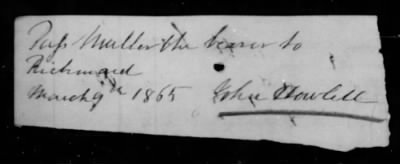 Pass Muller the bearer to
Richmond
March 9th 1865 John Howlett